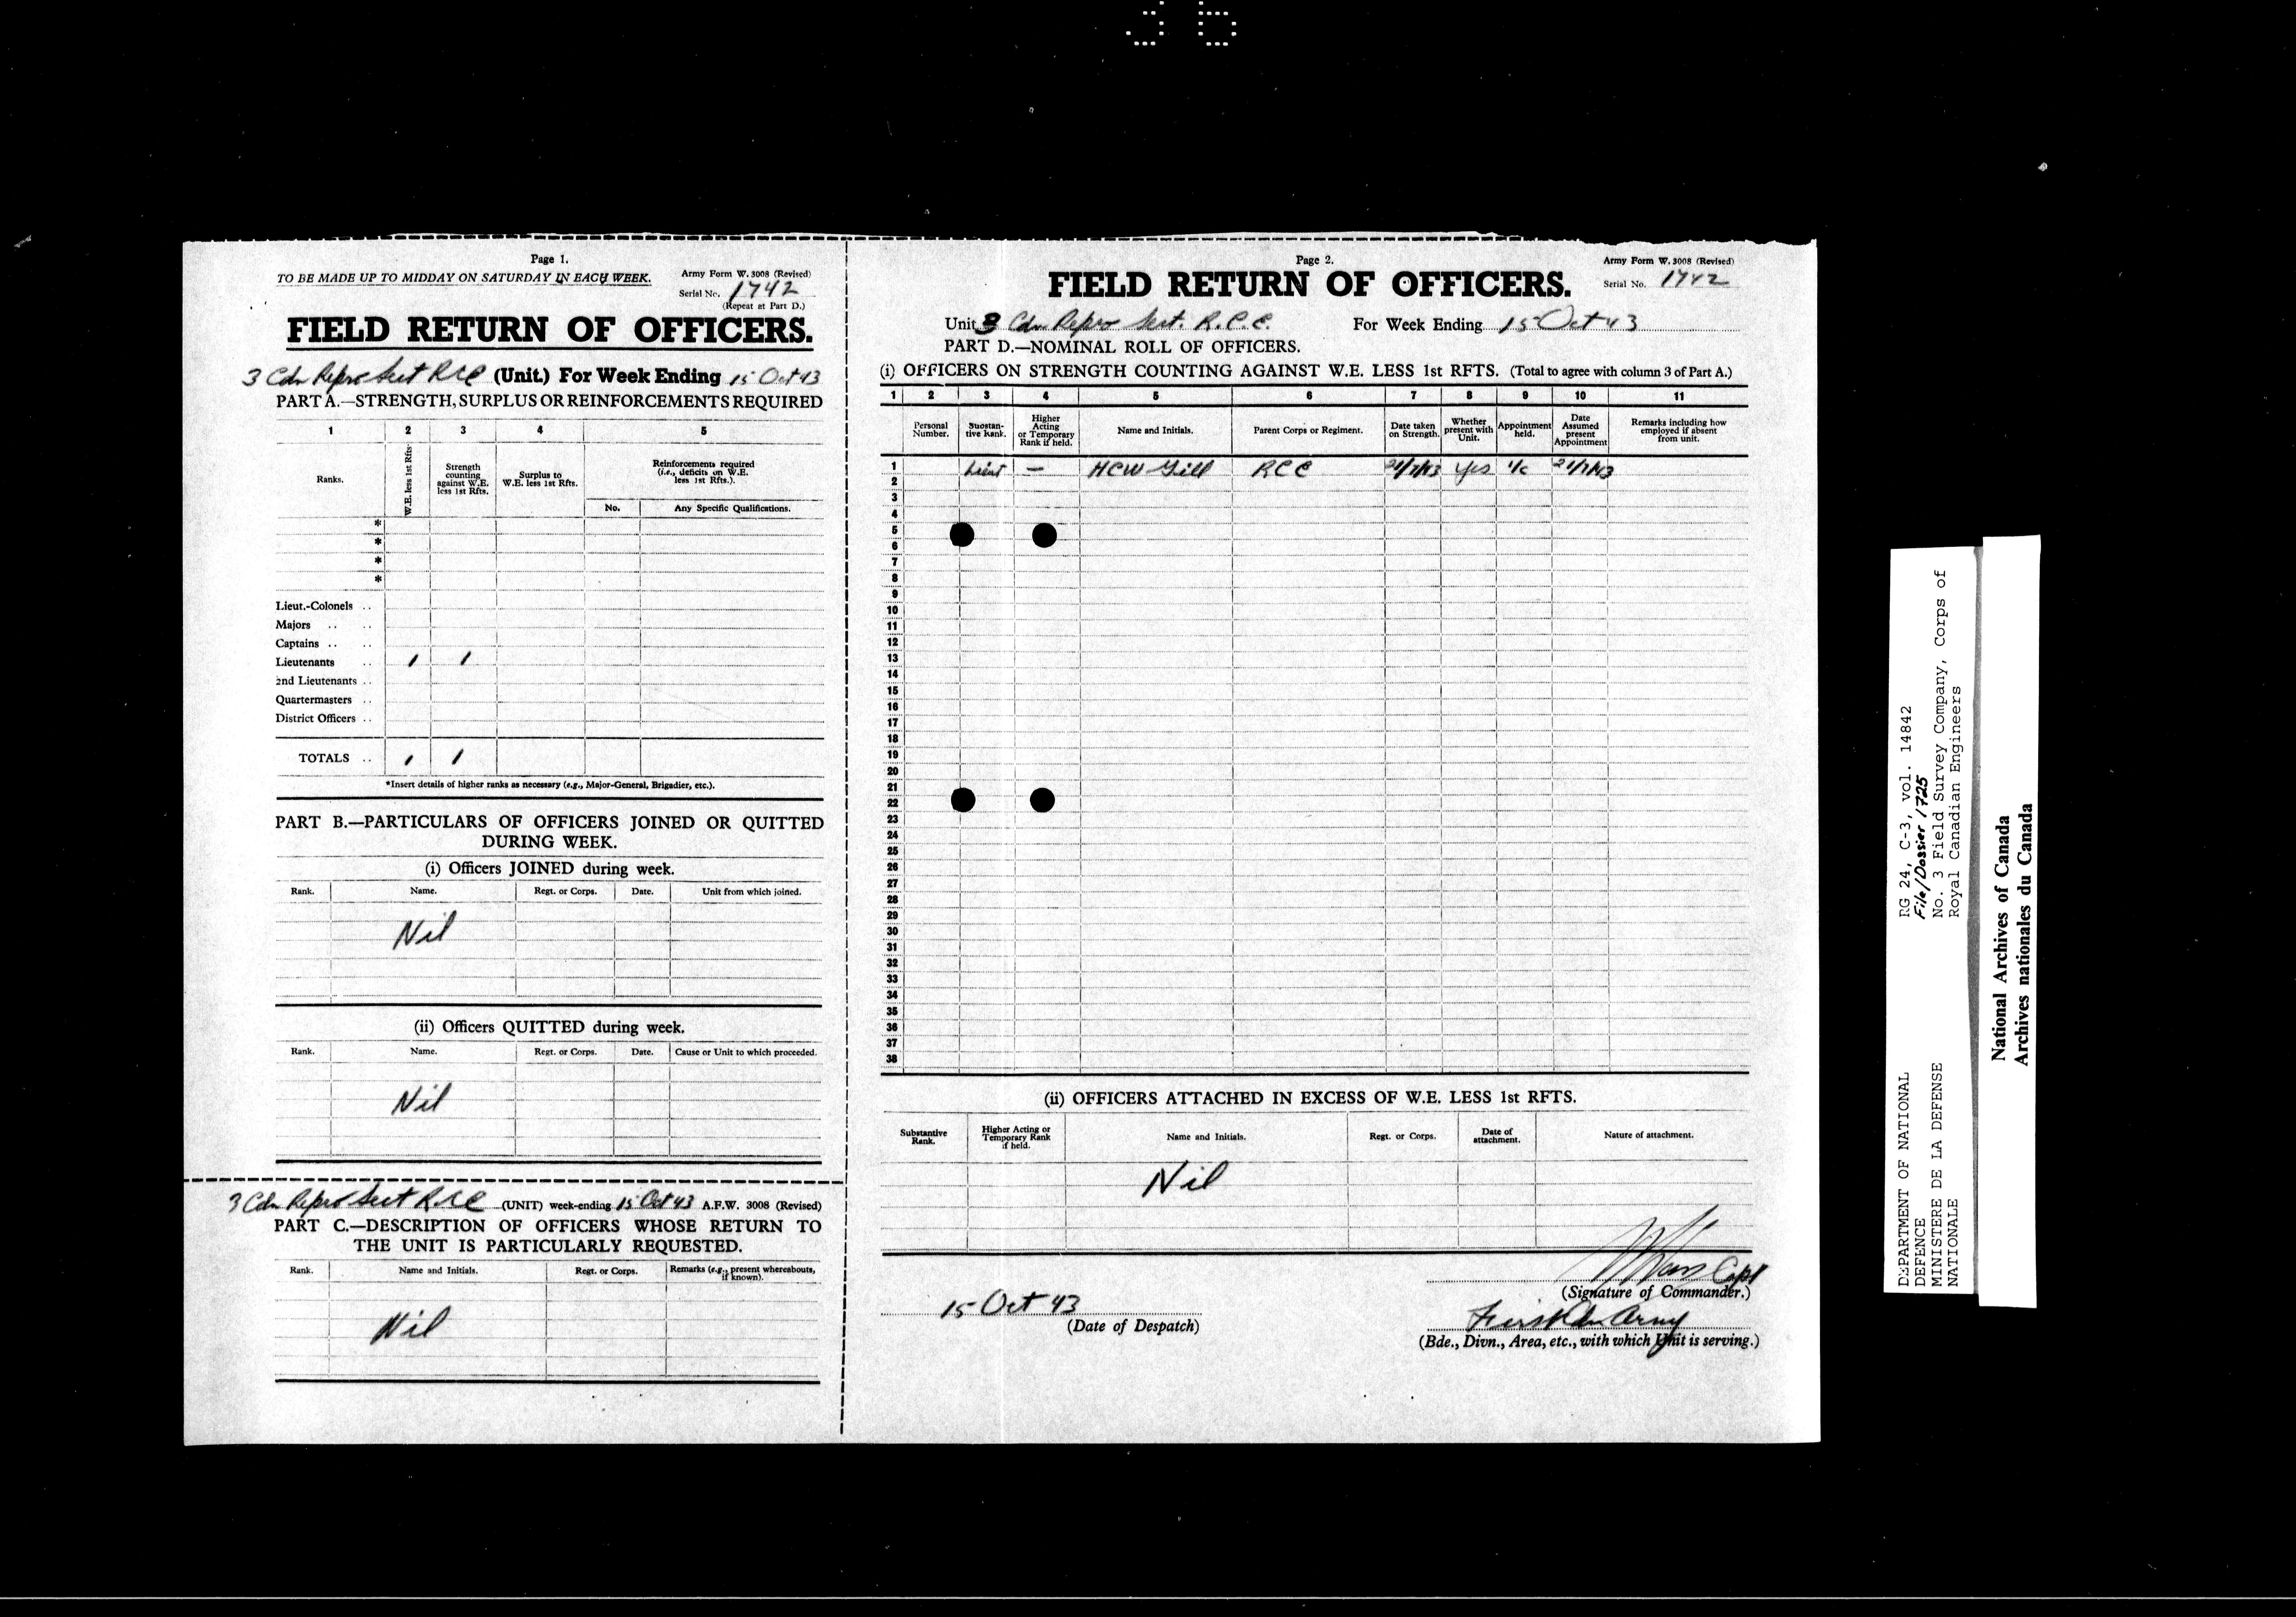 Page 1.
TO BE MADE UP TO MIDDAY ON SATURDAY IN EACH WEEK.
Army Form W. 3008 (Revised)
Serial No. 1742
(Repeat at Part D.)
FIELD RETURN OF OFFICERS.
3 Cdn Repro Sect RCE (Unit.) For Week Ending 15 Oct 43
PART A.—STRENGTH, SURPLUS OR REINFORCEMENTS REQUIRED
1 2 3 4 5
Ranks.
W.E. less 1st Rfts.
Strength counting against W.E. less 1st Rfts.
Surplus to W.E. less 1st Rfts.
Reinforcements required (i.e., deficits on W.E. less 1st Rfts.).
No. Any Specific Qualifications.
*
*
*
*
Lieut.-Colonels ..
Majors .. ..
Captains .. ..
Lieutenants .. 1 1
2nd Lieutenants ..
Quartermasters ..
District Officers ..
TOTALS .. 1 1
*Insert details of higher ranks as necessary (e.g., Major-General, Brigadier, etc.).
PART B.—PARTICULARS OF OFFICERS JOINED OR QUITTED
DURING WEEK.
(i) Officers JOINED during week.
Rank. Name. Regt. or Corps. Date. Unit from which joined.
Nil
(ii) Officers QUITTED during week.
Rank. Name. Regt. or Corps. Date. Cause or Unit to which proceeded.
Nil
3 Cdn Repro Sect RCE (UNIT) week-ending 15 Oct 43 A.F.W. 3008 (Revised)
PART C.—DESCRIPTION OF OFFICERS WHOSE RETURN TO
THE UNIT IS PARTICULARLY REQUESTED.
Rank. Name and Initials. Regt. or Corps. Remarks (e.g., present whereabouts, if known).
Nil
Page 2.
Army Form W. 3008 (Revised)
Serial No. 1742
FIELD RETURN OF OFFICERS.
Unit 3 Cdn Repro Sect. R.C.E. For Week Ending 15 Oct 43
PART D.—NOMINAL ROLL OF OFFICERS.
(i) OFFICERS ON STRENGTH COUNTING AGAINST W.E. LESS 1st RFTS. (Total to agree with column 3 of Part A.)
1 2 3 4 5 6 7 8 9 10 11
Personal Number.
Substantive Rank.
Higher Acting or Temporary Rank if held.
Name and Initials.
Parent Corps or Regiment.
Date taken on Strength.
Whether present with Unit.
Appointment held.
Date Assumed present Appointment
Remarks including how employed if absent from unit.
1 Lieut — HCW Gill RCE 21/7/43 Yes I/C 21/7/43
2
3
4
5
6
7
8
9
10
11
12
13
14
15
16
17
18
19
20
21
22
23
24
25
26
27
28
29
30
31
32
33
34
35
36
37
38
(ii) OFFICERS ATTACHED IN EXCESS OF W.E. LESS 1st RFTS.
Substantive Rank.
Higher Acting or Temporary Rank if held.
Name and Initials.
Regt. or Corps.
Date of attachment.
Nature of attachment.
Nil
Capt
(Signature of Commander.)
15 Oct 43
(Date of Despatch)
First Cdn Army
(Bde., Divn., Area, etc., with which Unit is serving.)
DEPARTMENT OF NATIONAL
DEFENCE
MINISTERE DE LA DEFENSE
NATIONALE
RG 24, C-3, vol. 14842
File/Dossier 1725
No. 3 Field Survey Company, Corps of
Royal Canadian Engineers
National Archives of Canada
Archives nationales du Canada